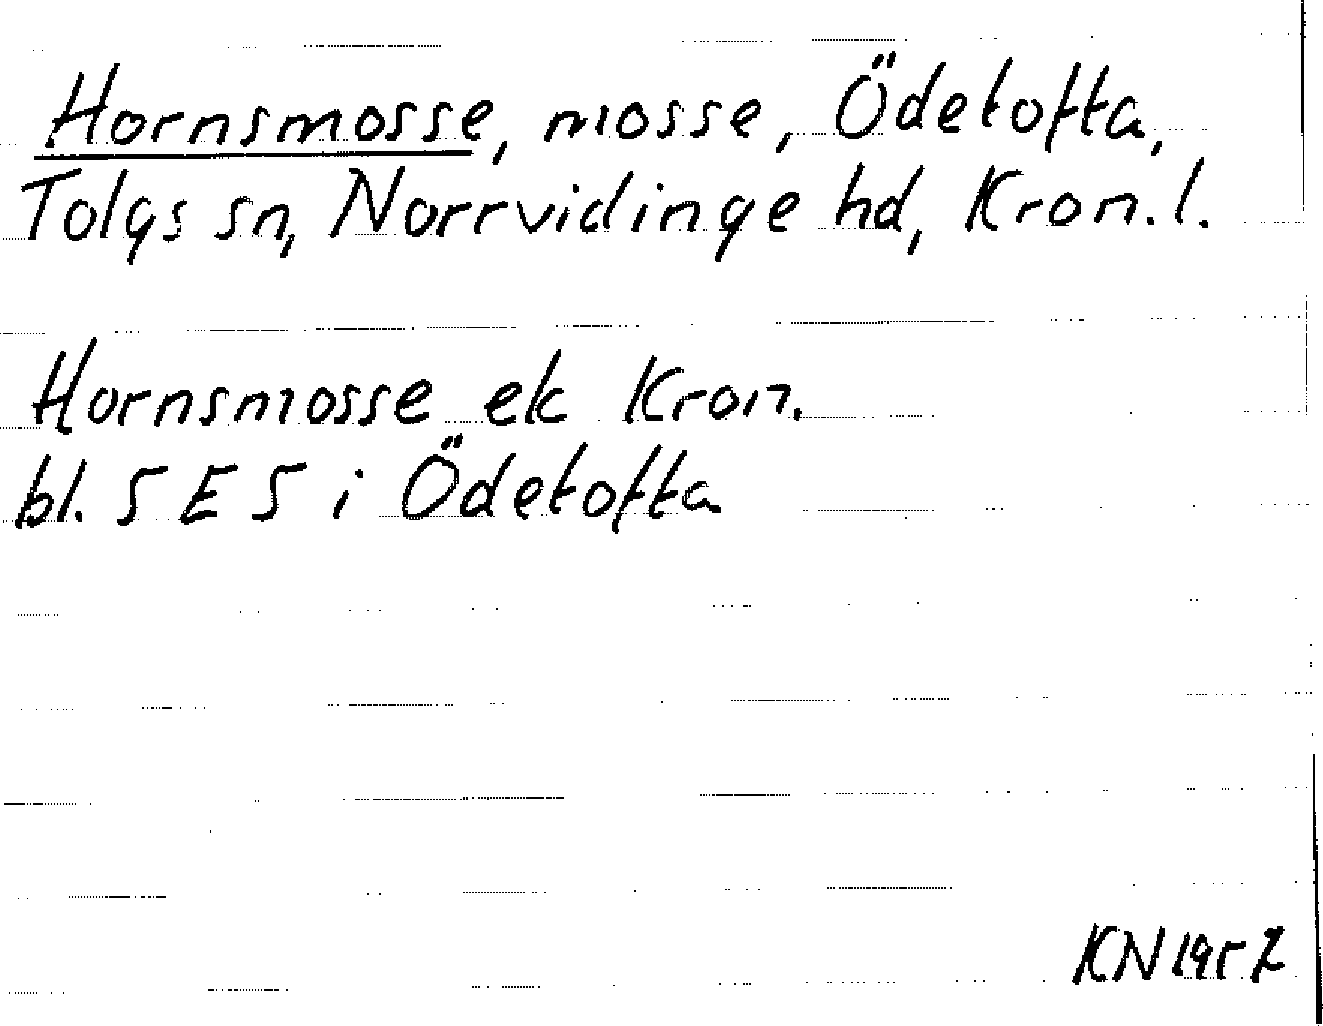 Hornsmosse, mosse, Ödetofta,
Tolgs sn, Norrvidinge hd, Kron. l.
Hornsmosse ek Kron.
bl. 5 E 5 i Ödetofta
KN 1952